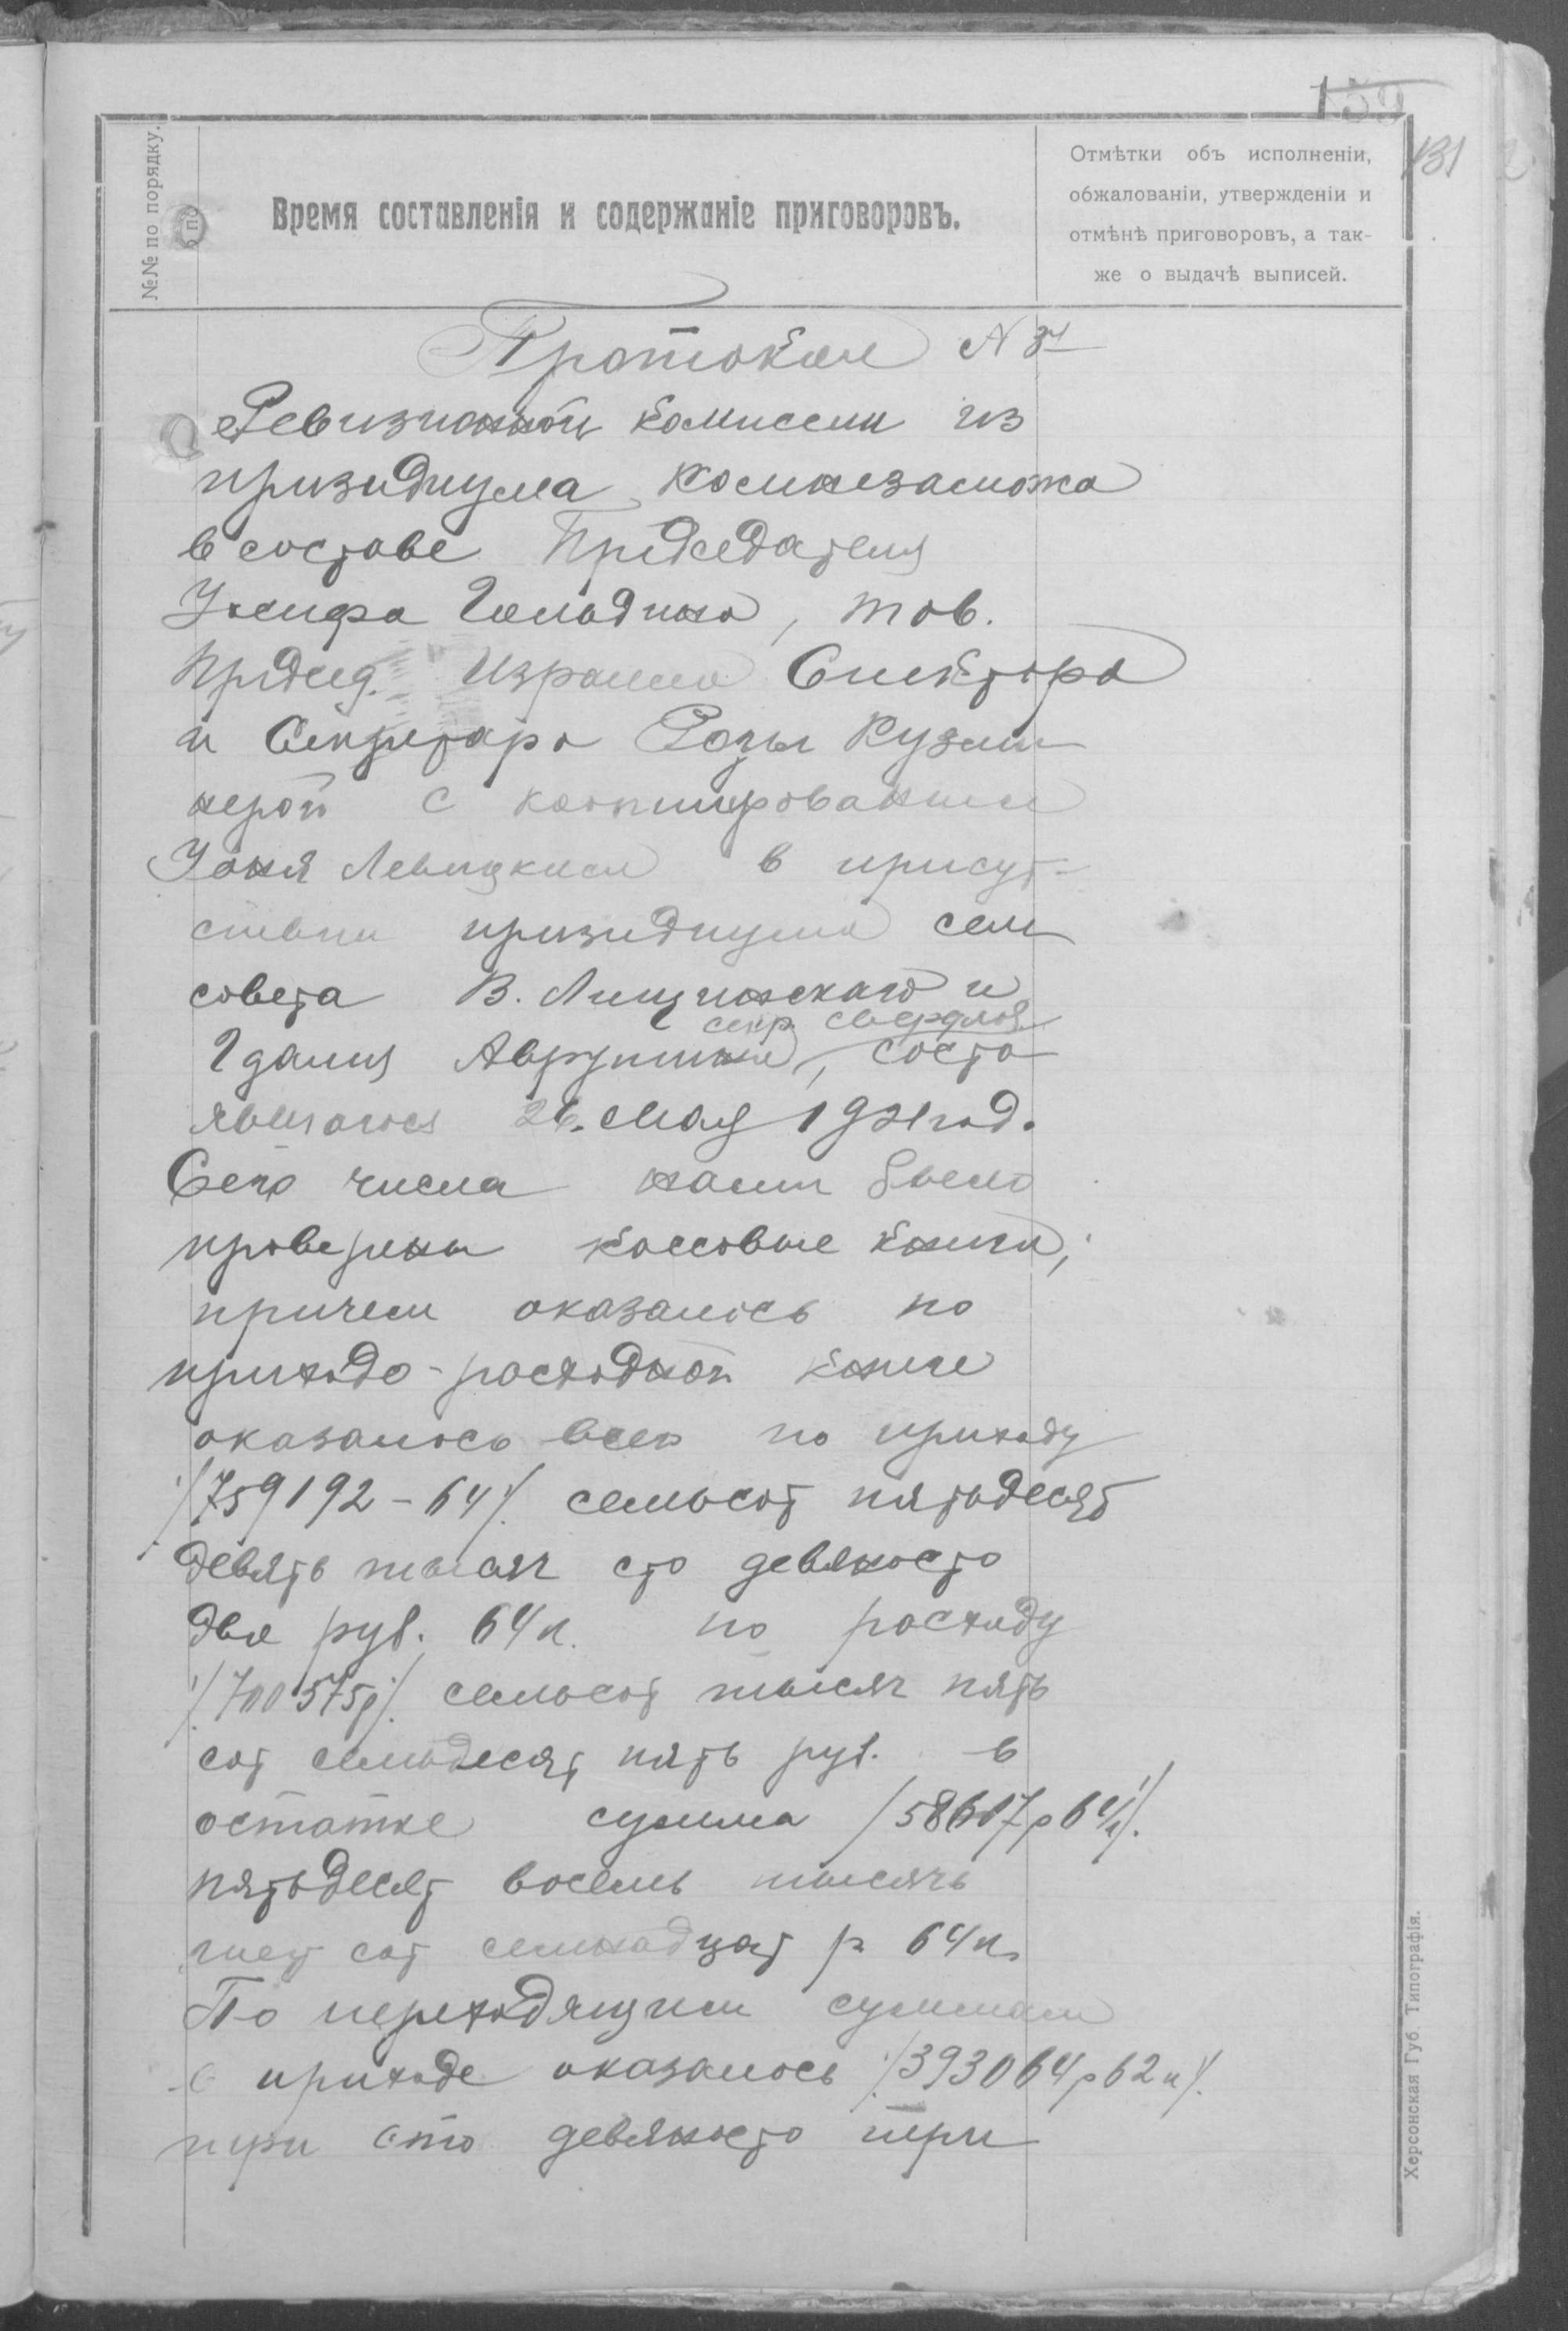 131
№№ по порядку.
Время составленія и содержаніе приговоровъ.
Отмѣтки объ исполненіи,
обжалованіи, утвержденіи и
отмѣнѣ приговоровъ, а так-
же о выдачѣ выписей.
Протокол №
Ревизионной комиссии из
призидиума Комнезаможа
в составе Придседателя
Иосифа Гольдина, тов.
Придсед. Израиля Спектора
и Секритаря Розы Кузми
нерой с кооптированием
Левицким в присут-
ствии призидиума сель
совета В. Лищинскаго и
секр. свердлов.
Гдалия Аврутина, состо
явшагося 26. Мая 1921 год.
Сего числа нами было
проверины кассовые книги,
причем оказалось по
приходо-росходной книге
оказалось всего по приходу
/759192-64/. семьсот пятьдесят
девять тысяч сто девяносто
два руб. 64 к. по росходу
/700575р/. семьсот тысяч пять
сот семьдесят пять руб. в
остатке сумма /58617р64к/.
пятьдесят восемь тысячь
шест сот семнадцат р 64 к.
По переходящим суммам
в приходе оказалось /393064р62к/.
три сто девяносто три
Херсонская Губ. Типографія.